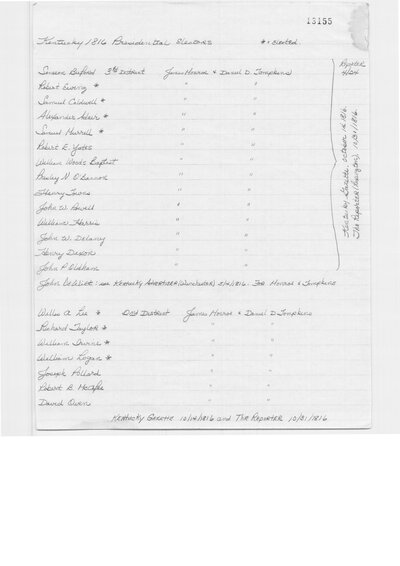 13155
Kentucky 1816 Presidential Electors * = elected
Simeon Buford 3rd District James Monroe & Daniel D. Tompkins
Robert Ewing * " "
Samuel Caldwell * " "
Alexander Adair * " "
Samuel Murrell * " "
Robert E. Yates " "
William Woods Baptist " "
Presley N. O'Bannon " "
Henry " "
John W. Powell " "
William Harris " "
John W. Delaney " "
Henry Dixon " "
John P. Oldham " "
John DeWitt: see Kentucky Advertiser (Winchester) For Monroe & Tompkins
Reporter
Kentucky Gazette October 14, 1816.
The Reporter (Lexington). 10/31/1816.
Willis A. Lee * 2nd District James Monroe & Daniel D Tompkins
Richard Taylor * " "
William Irvine * " "
William Logan * " "
Joseph Pollard " "
Robert B. McAfee " "
David Owen " "
Kentucky Gazette 10/14/1816 and The Reporter 10/31/1816